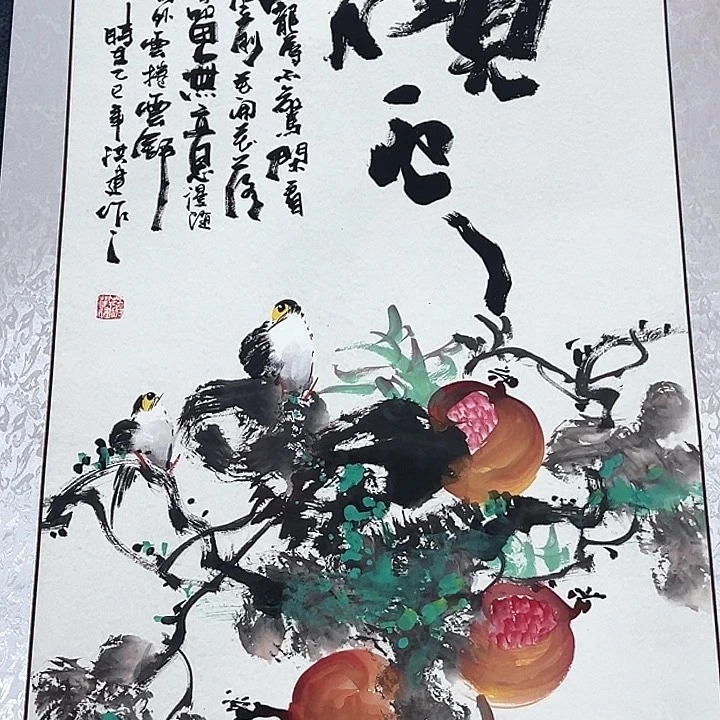 順心
寵辱不驚閑看
庭前花開花落
留無意漫隨
外雲捲雲舒
時在乙巳年洪建作